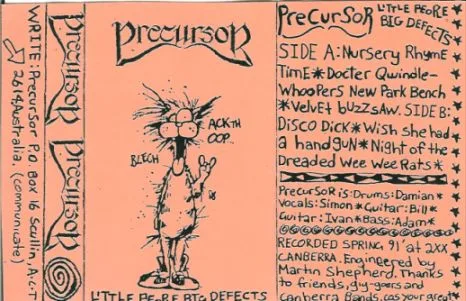 WRITE: PrecurSor P.O. Box 16 Scullin, A.C.T
2614 Australia. (communicate)
Precursor Precursor
Precursor
ACKTH
OOP..
BLECH
LiTTLE PEOPLE BIG DEFECTS
PreCurSoR LiTTLE PEOPLE
BIG DEFECTS
SIDE A: Nursery RhymE
TimE * Docter Qwindle-
WhooPers New Park Bench
* VelvEt bUZZsAw. SIDE B:
DiSCO Dick * Wish she had
a handgUN * Night of the
Dreaded Wee Wee Rats *
PrecurSoR is: Drums: Damian *
Vocals: Simon * Guitar: Bill *
Guitar: Ivan * Bass: Adam *
RECORDED SPRING, 91' at 2XX
CANBERRA. Engineered by
Martin Shepherd. Thanks
to friends, gig-goers and
Canberra Bands, cos your great